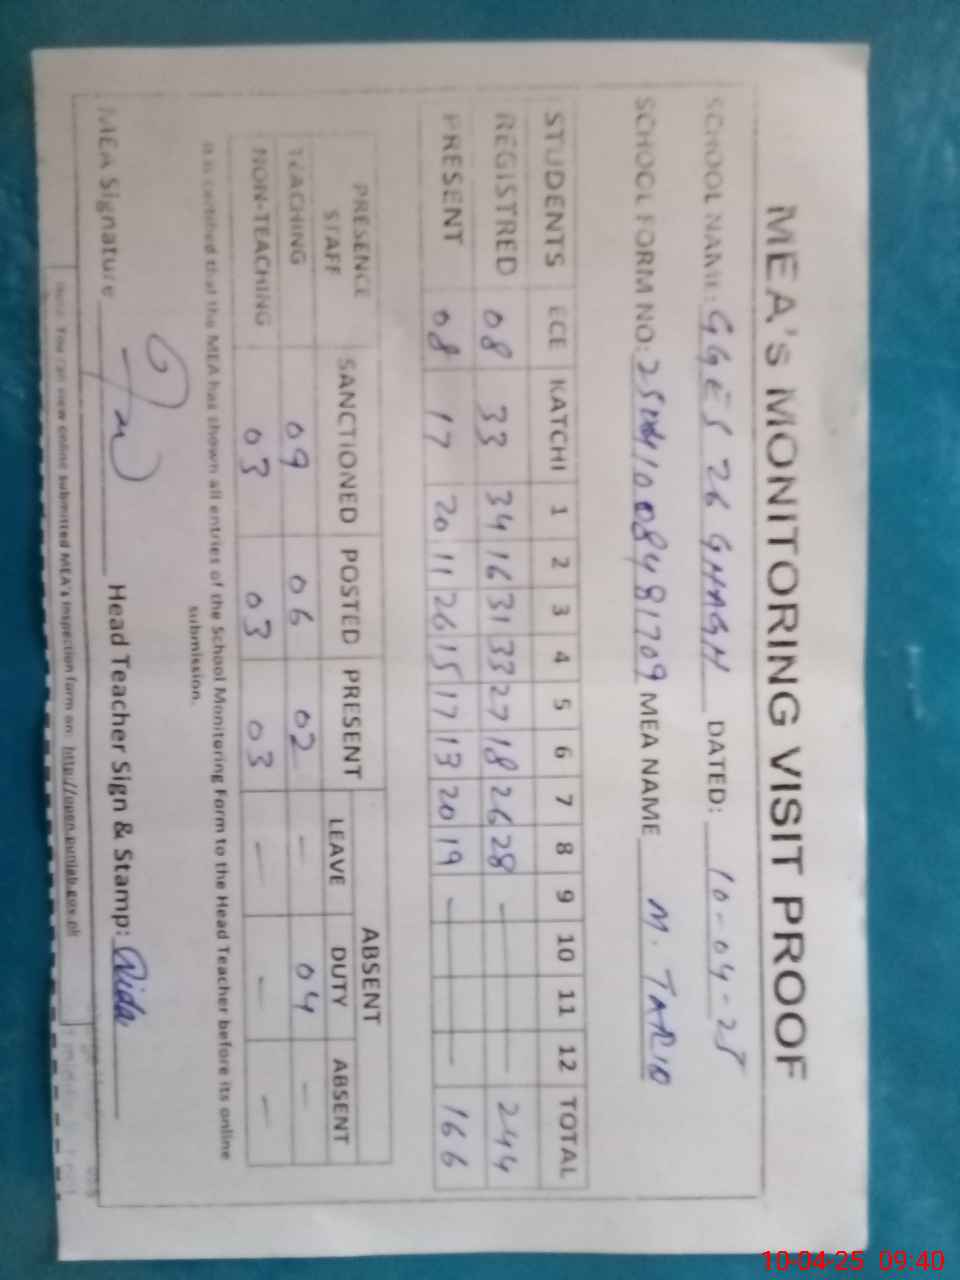 MEA's MONITORING VISIT PROOF
SCHOOL NAME: GGES 26 GHAGH DATED: 10-04-25
SCHOOL FORM NO: MEA NAME M. TARIQ
STUDENTS ECE KATCHI 1 2 3 4 5 6 7 8 9 10 11 12 TOTAL
REGISTRED 08 33 34 16 31 33 27 18 26 28 — — 244
PRESENT 08 17 20 11 26 15 17 13 20 19 — — 166
PRESENCE STAFF SANCTIONED POSTED PRESENT ABSENT
LEAVE DUTY ABSENT
TEACHING 09 06 02 — 04 —
NON-TEACHING 03 03 03 — — —
It is certified that the MEA has shown all entries of the School Monitoring Form to the Head Teacher before its online
submission.
MEA Signature Head Teacher Sign & Stamp: Nida
Note: You can view online submitted MEA's inspection form on: http://open.punjab.gov.pk
10-04-25 09:40